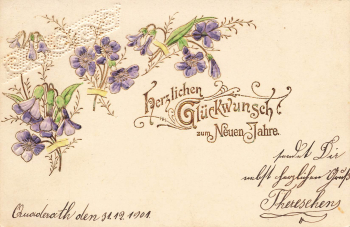 Herzlichen
Glückwunsch
zum Neuen Jahre.
sendet Dir
nebst herzlichen Gruß
Theresehen
Quadrath den 31.12.1901